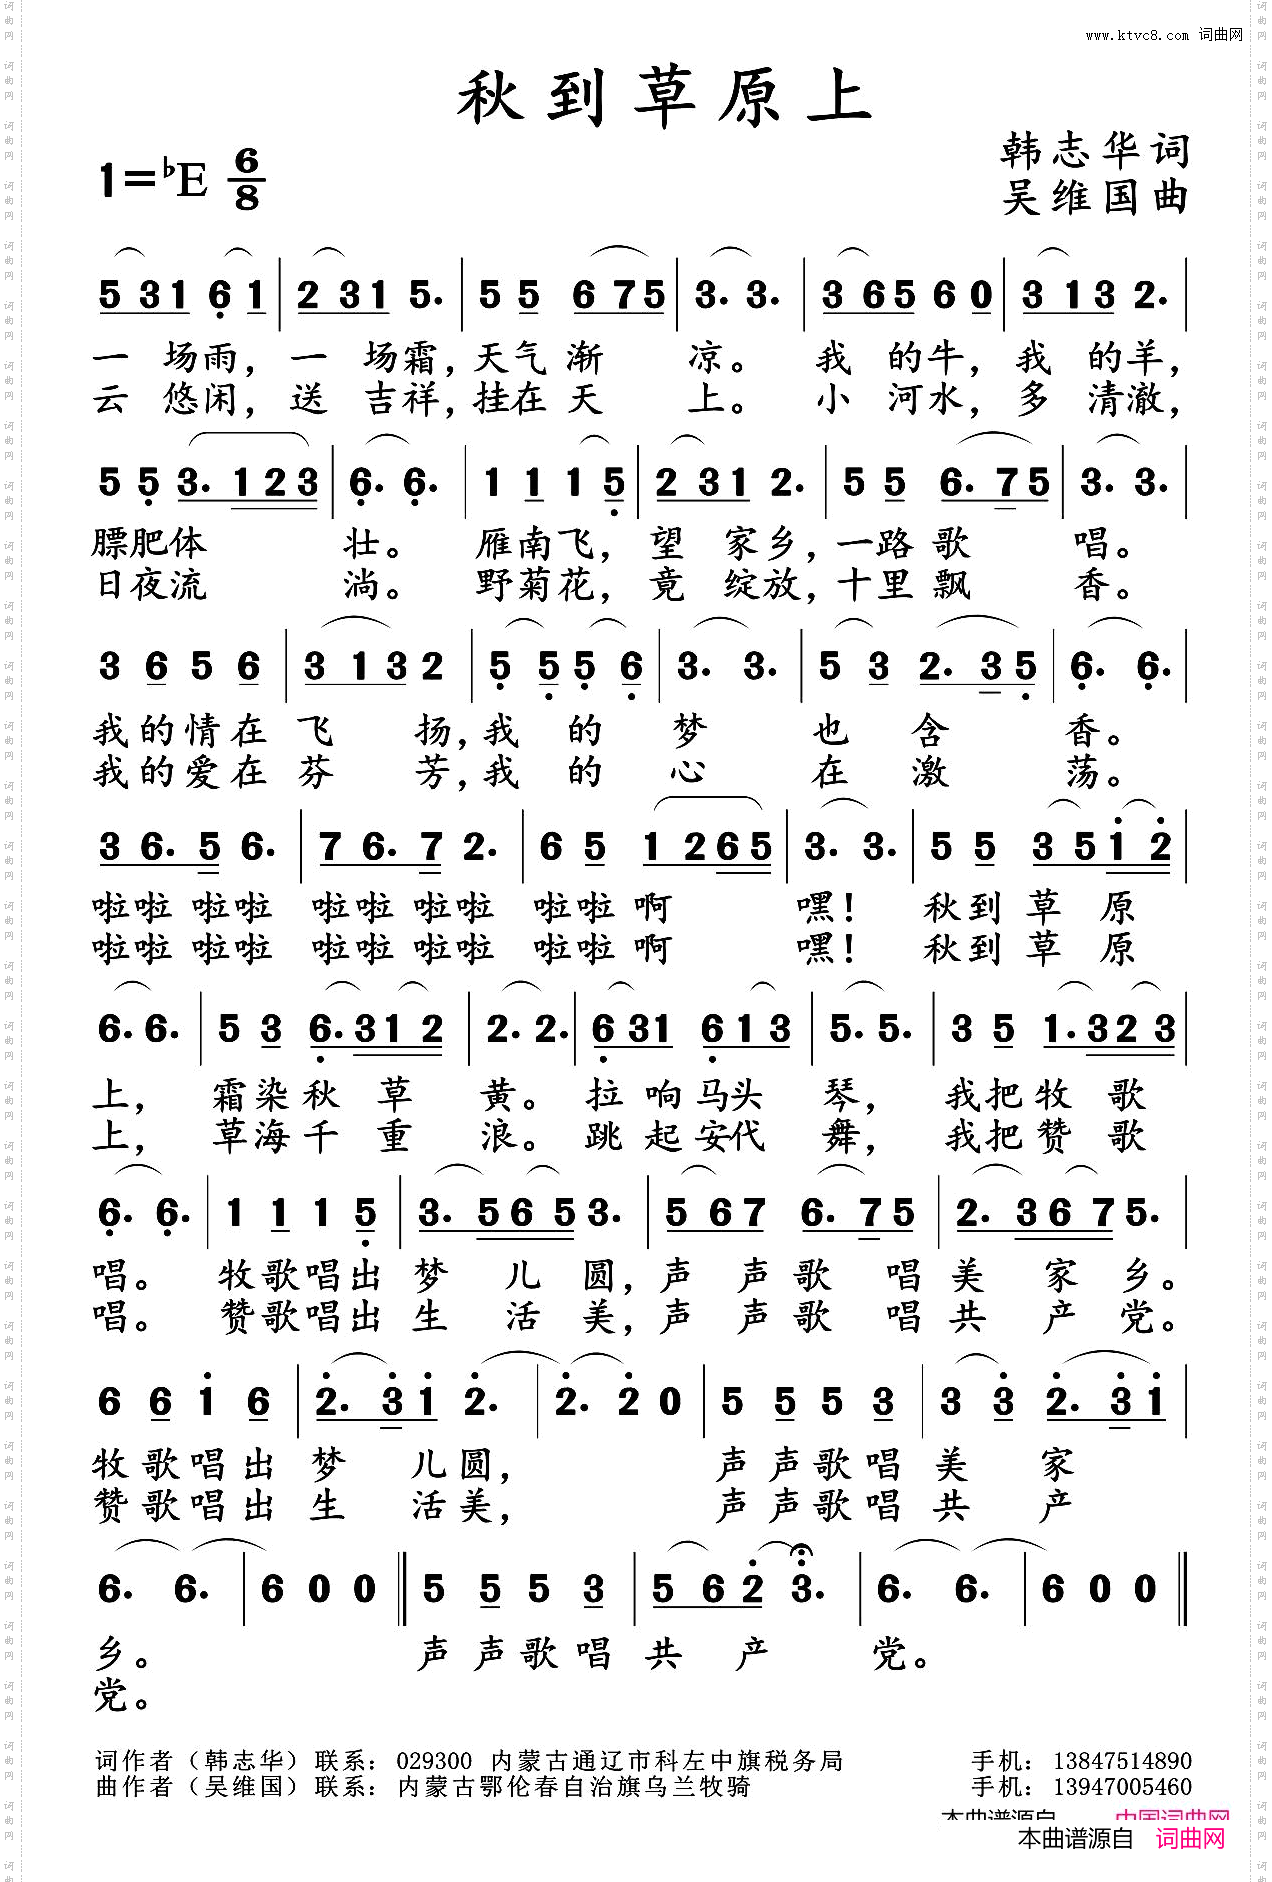 www.ktvc8.com 词曲网
秋到草原上
1=♭E 6/8
韩志华词
吴维国曲
5 3 1 6 1 | 2 3 1 5. | 5 5 6 7 5 | 3. 3. | 3 6 5 6 0 | 3 1 3 2. |
一 场雨, 一 场霜, 天气渐 凉。 我 的牛, 我 的羊,
云 悠闲, 送 吉祥, 挂在天 上。 小 河水, 多 清澈,
5 5 3. 1 2 3 | 6. 6. | 1 1 1 5 | 2 3 1 2. | 5 5 6. 7 5 | 3. 3. |
膘肥体 壮。 雁南飞, 望 家乡, 一路歌 唱。
日夜流 淌。 野菊花, 竟 绽放, 十里飘 香。
3 6 5 6 | 3 1 3 2 | 5 5 5 6 | 3. 3. | 5 3 2. 3 5 | 6. 6. |
我的情在飞 扬, 我 的 梦 也 含 香。
我的爱在芬 芳, 我 的 心 在 激 荡。
3 6. 5 6. | 7 6. 7 2. | 6 5 1 2 6 5 | 3. 3. | 5 5 3 5 1 2 |
啦啦 啦啦 啦啦 啦啦 啦啦 啊 嘿! 秋到 草 原
啦啦 啦啦 啦啦 啦啦 啦啦 啊 嘿! 秋到 草 原
6. 6. | 5 3 6. 3 1 2 | 2. 2. | 6 3 1 6 1 3 | 5. 5. | 3 5 1. 3 2 3 |
上, 霜染秋 草 黄。 拉 响马头 琴, 我把牧 歌
上, 草海千 重 浪。 跳 起安代 舞, 我把赞 歌
6. 6. | 1 1 1 5 | 3. 5 6 5 3. | 5 6 7 6. 7 5 | 2. 3 6 7 5. |
唱。 牧歌唱出 梦 儿 圆, 声 声 歌 唱 美 家 乡。
唱。 赞歌唱出 生 活 美, 声 声 歌 唱 共 产 党。
6 6 1 6 | 2. 3 1 2. | 2. 2 0 | 5 5 5 3 | 3 3 2. 3 1 |
牧歌唱出 梦 儿圆, 声声歌唱 美 家
赞歌唱出 生 活美, 声声歌唱 共 产
6. 6. | 6 0 0 || 5 5 5 3 | 5 6 2 3. | 6. 6. | 6 0 0 ||
乡。 声声歌唱 共 产 党。
党。
词作者（韩志华）联系：029300 内蒙古通辽市科左中旗税务局 手机：13847514890
曲作者（吴维国）联系：内蒙古鄂伦春自治旗乌兰牧骑 手机：13947005460
本曲谱源自 中国词曲网
本曲谱源自 词曲网